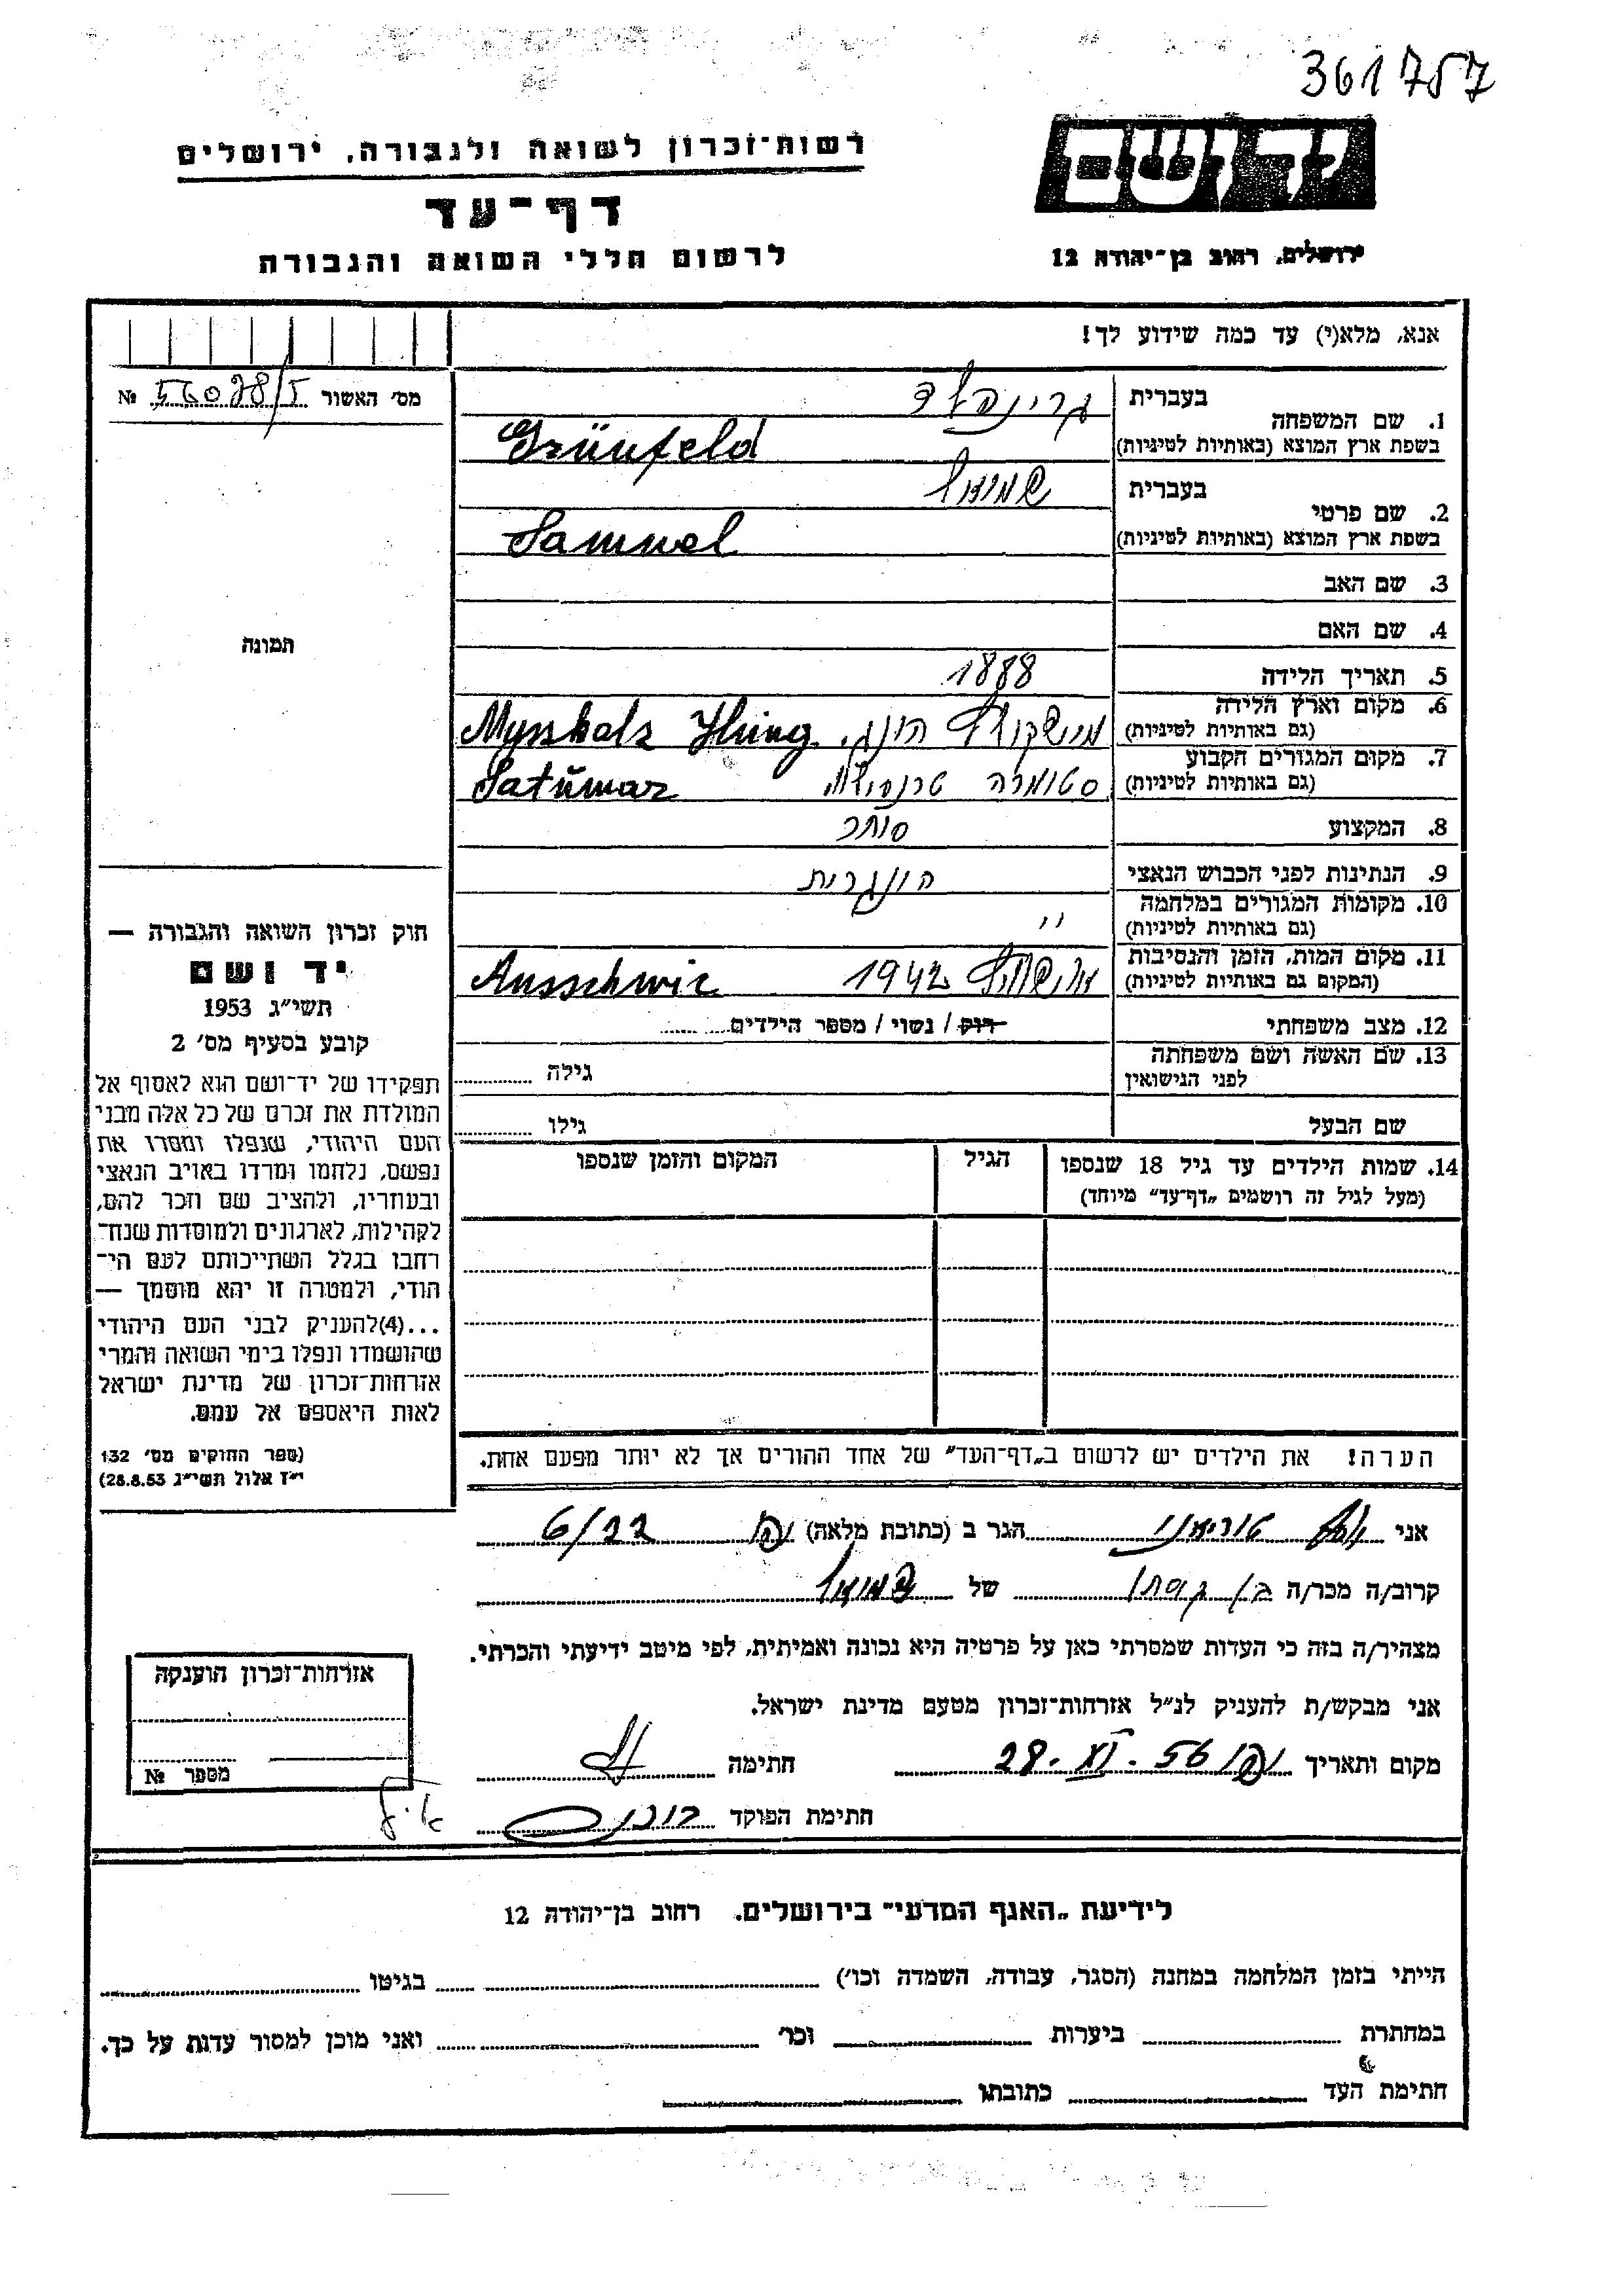 361757
רשות-זכרון לשואה ולגבורה, ירושלים
דף-עד
לרשום חללי השואה והגבורה
יד ושם
ירושלים, רחוב בן-יהודה 12
אנא, מלא(י) עד כמה שידוע לך!
מס' האשור № 56098/5
1. שם המשפחה בעברית גרינפלד
בשפת ארץ המוצא (באותיות לטיניות) Grünfeld
2. שם פרטי בעברית שמואל
בשפת ארץ המוצא (באותיות לטיניות) Samuel
3. שם האב
4. שם האם
תמונה
5. תאריך הלידה 1888
6. מקום וארץ הלידה
(גם באותיות לטיניות) מישקולץ הונג. Mysskolz Hung
7. מקום המגורים הקבוע
(גם באותיות לטיניות) סטומרה Satumar
8. המקצוע סוחר
9. הנתינות לפני הכבוש הנאצי הונגרית
10. מקומות המגורים במלחמה
(גם באותיות לטיניות) "
11. מקום המות, הזמן והנסיבות
(המקום גם באותיות לטיניות) אושויץ 1942 Ausschwic
12. מצב משפחתי רוק / נשוי / מספר הילדים
13. שם האשה ושם משפחתה
לפני הנישואין גילה
שם הבעל גילו
14. שמות הילדים עד גיל 18 שנספו הגיל המקום והזמן שנספו
(מעל לגיל זה רושמים „דף-עד" מיוחד)
חוק זכרון השואה והגבורה —
יד ושם
תשי״ג 1953
קובע בסעיף מס' 2
תפקידו של יד-ושם הוא לאסוף אל
המולדת את זכרם של כל אלה מבני
העם היהודי, שנפלו ומסרו את
נפשם, נלחמו ומרדו באויב הנאצי
ובעוזריו, ולהציב שם וזכר להם,
לקהילות, לארגונים ולמוסדות שנח-
רחבו בגלל השתייכותם לעם הי-
הודי, ולמטרה זו יהא מוסמך —
...(4)להעניק לבני העם היהודי
שהושמדו ונפלו בימי השואה והמרי
אזרחות-זכרון של מדינת ישראל
לאות היאספם אל עמם.
(ספר החוקים מס' 132
י״ז אלול תשי״ג 28.8.53)
הערה! את הילדים יש לרשום ב„דף-העד" של אחד ההורים אך לא יותר מפעם אחת.
אני הגר ב (כתובת מלאה) 6/22
קרוב/ה מכר/ה בן של שמואל
מצהיר/ה בזה כי העדות שמסרתי כאן על פרטיה היא נכונה ואמיתית, לפי מיטב ידיעתי והכרתי.
אני מבקש/ת להעניק לנ״ל אזרחות-זכרון מטעם מדינת ישראל.
מקום ותאריך 28.VI.56 חתימה
חתימת הפוקד
אזרחות-זכרון הוענקה
מספר №
לידיעת „האגף המדעי" בירושלים. רחוב בן-יהודה 12
הייתי בזמן המלחמה במחנה (הסגר, עבודה, השמדה וכו') בגיטו
במחתרת ביערות וכו' ואני מוכן למסור עדות על כך.
חתימת העד כתובתו